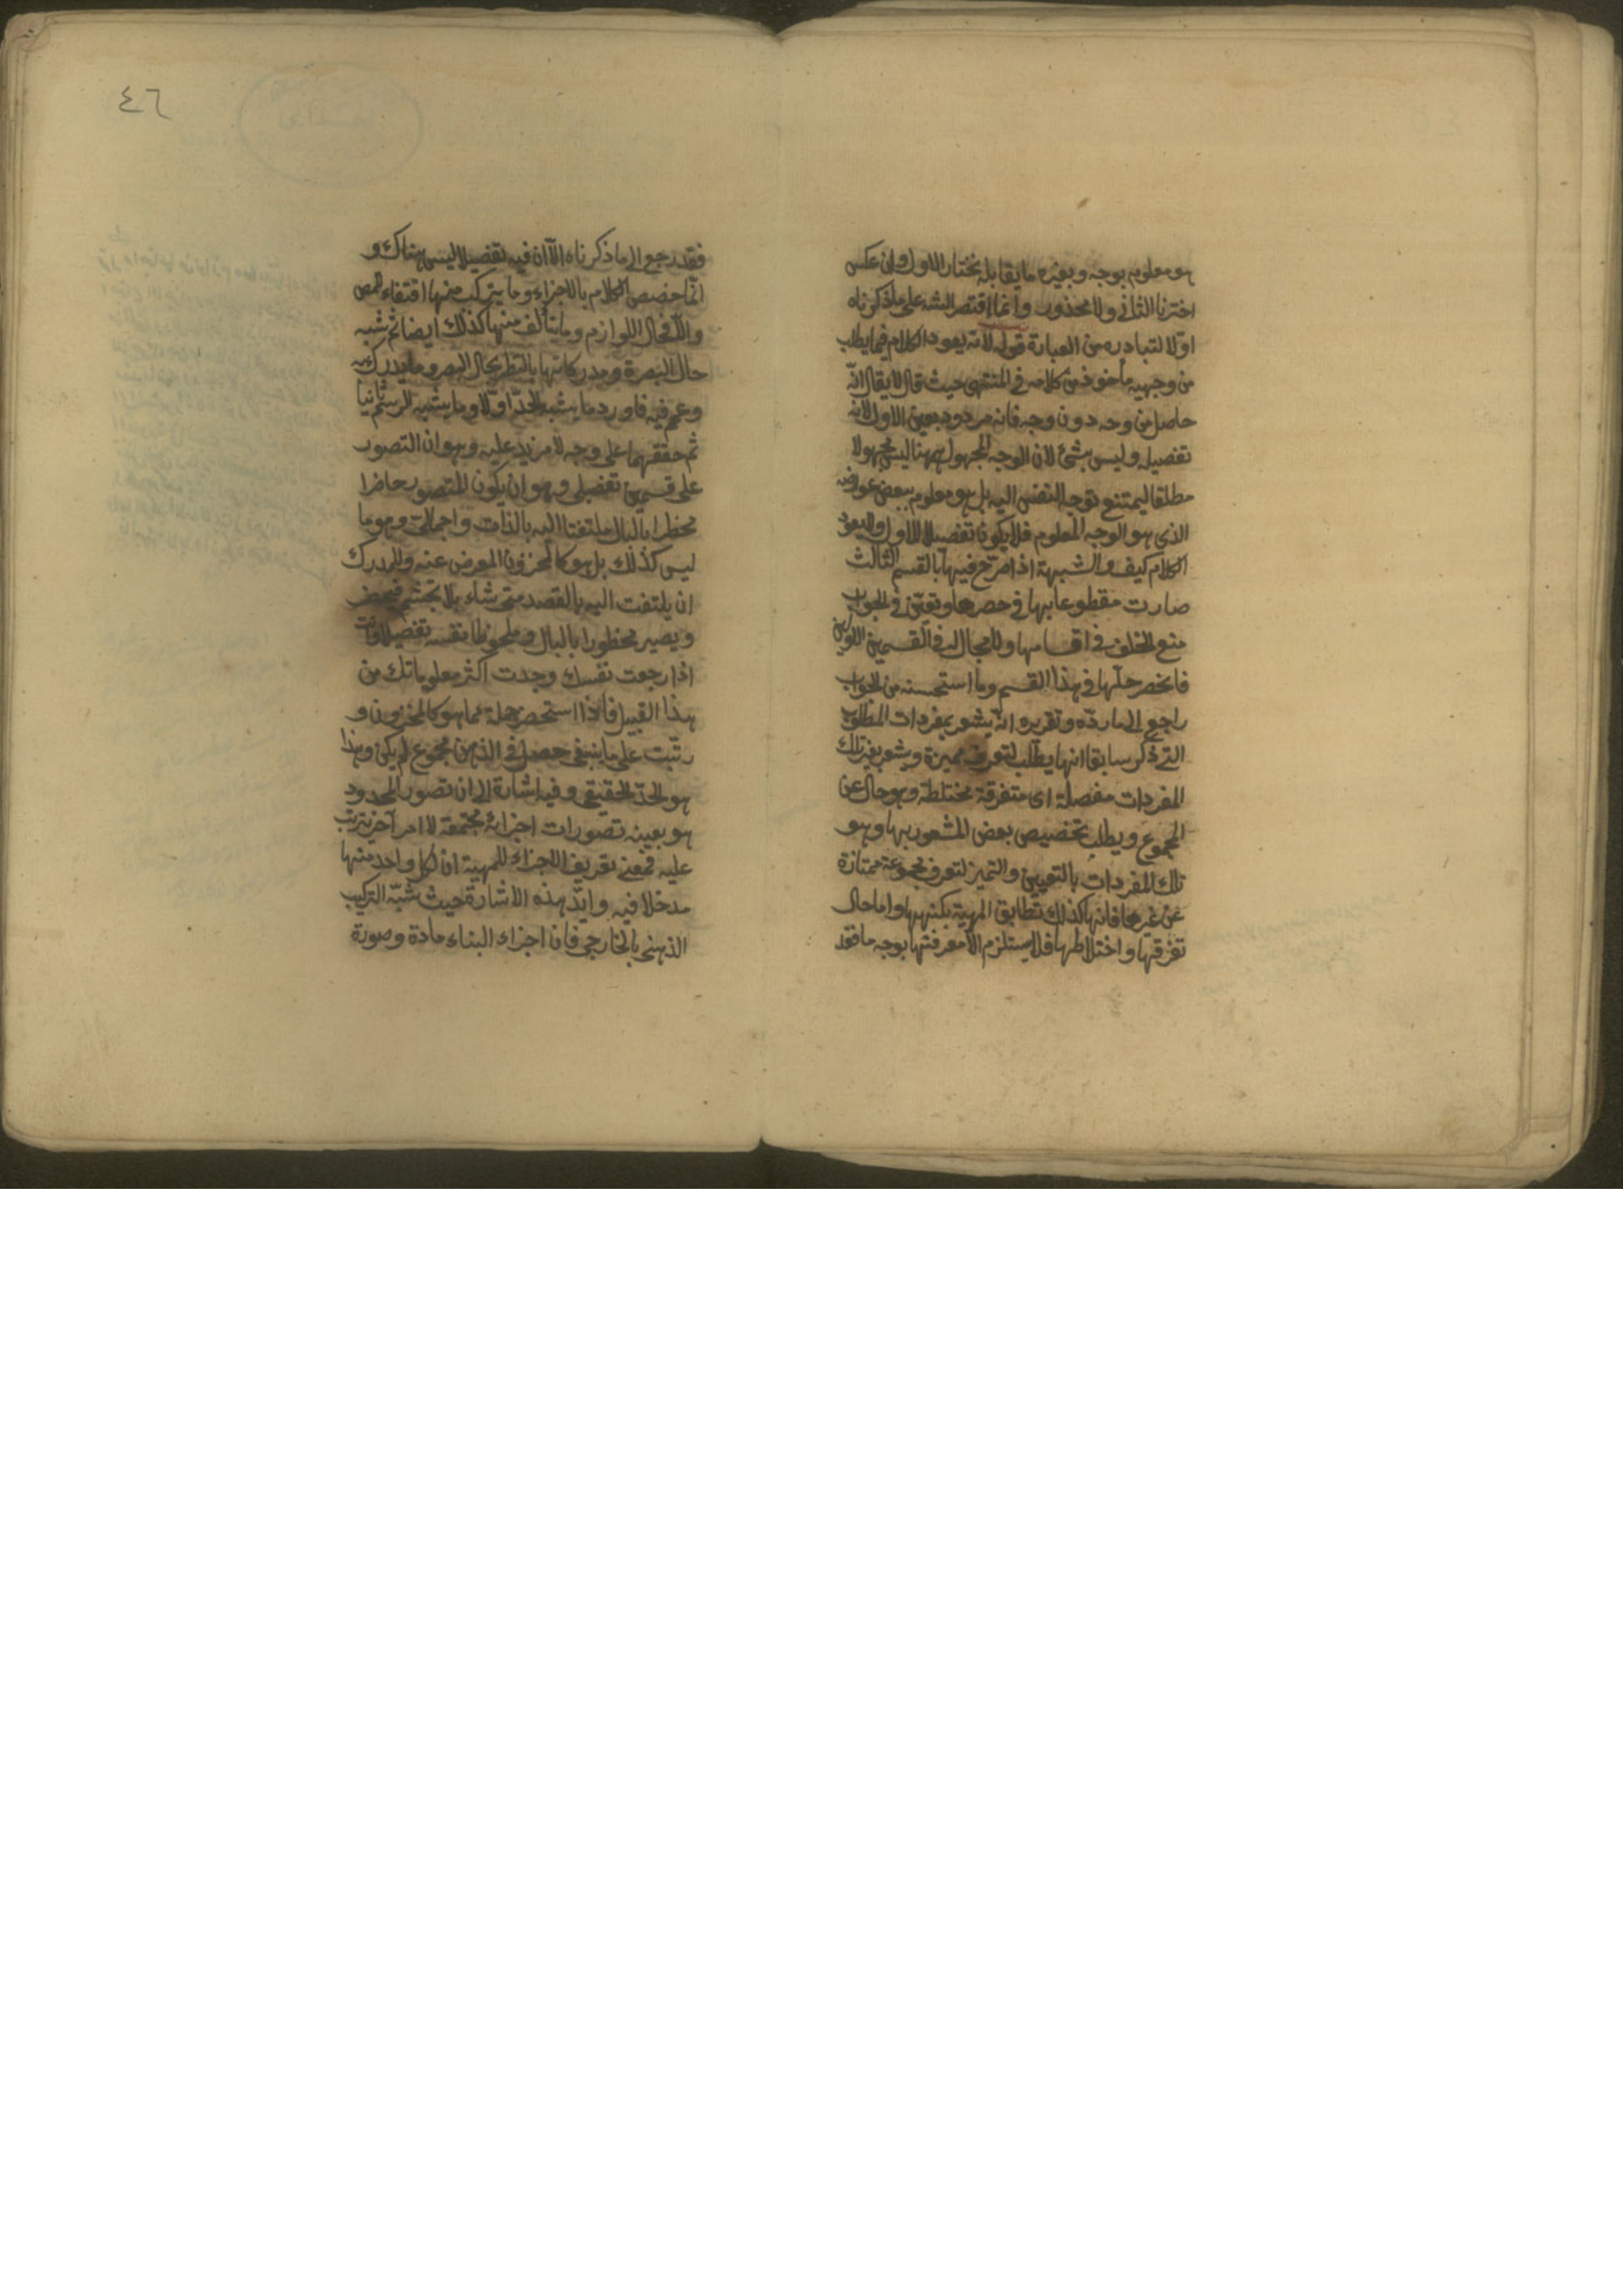 هو معلوم بوجه وبغيره ما يقابله نختار الاول وان عكس
اخترنا الثاني ولا محذور وانما اقتصر الشه على ما ذكرناه
اولا لتبادره من العبارة قوله لانه يعود الكلام فيما يطلب
من وجهيه مأخوذ من كلامه في المنتهى حيث قال لا يقال انه
حاصل من وجه دون وجه فانه مردود بعين الاول لانه
تفصيله وليس بشئ لان الوجه المجهول ههنا ليس مجهولا
مطلقا ليمتنع توجه النفس اليه بل هو معلوم ببعض عوارضه
الذي هو الوجه المعلوم فلا يكون تفصيلا للاول ولا يعود
الكلام كيف والشبهة اذا صرح فيها بالقسم الثالث
صارت مقطوعا بها في حصرها وتعين في الجواب
منع الخلف في اقسامها ولا مجال له في القسمين الاولين
فانحصر حلها في هذا القسم وما استحسنه من الجواب
راجع الى ما رده وتقريره انه يشعر بمفردات المطلوب
التي ذكر سابقا انها يطلب لتعرف مميزة ويشعر بغير تلك
المفردات مفصلة اى متفرقة مختلطة وهو حال عن
المجموع ويطلب تخصيص بعض المشعور بها وهو
تلك المفردات بالتعيين والتميز لتعرف مجموعة ممتازة
عن غيرها فانها كذلك تطابق المهية بكنهها واما حال
تفرقها واختلاطها فلا يستلزم الا معرفتها بوجه ما فقد
٤٦
فقد رجع الى ما ذكرناه الا ان فيه تفصيلا ليس هناك و
انما خصص الكلام بالاجزاء وما يتركب منها اقتفاء للمص
والا فحال اللوازم وما يتألف منها كذلك ايضا ثم شبه
حال البصيرة ومدركاتها بالنظر بحال البصر وما يدرك به
وعمم فيه فاورد ما يشبه الحد اولا وما يشبه الرسم ثانيا
ثم حققهما على وجه لا مزيد عليه وهو ان التصور
على قسمين تفصيلى وهو ان يكون المتصور حاضرا
مخطرا بالبال ملتفتا اليه بالذات واجمالى وهو ما
ليس كذلك بل هو كالمخزون المعرض عنه وللمدرك
ان يلتفت اليه بالقصد متى شاء بلا تجشم فيحضر
ويصير مخطورا بالبال وملحوظا نفسه تفصيلا وانت
اذا رجعت نفسك وجدت اكثر معلوماتك من
هذا القبيل فاذا استحضر جملة مما هو كالمخزون و
رتبت على ما ينبغى حصل في الذهن مجموع لم يكن وهذا
هو الحد الحقيقي وفيه اشارة الى ان تصور المحدود
هو بعينه تصورات اجزائه مجتمعة لا امر آخر يترتب
عليه فمعنى تعريف الاجزاء للمهية ان لكل واحد منها
مدخلا فيه وايد هذه الاشارة حيث شبه التركيب
الذهنى بالخارجى فان اجزاء البناء مادة وصورة